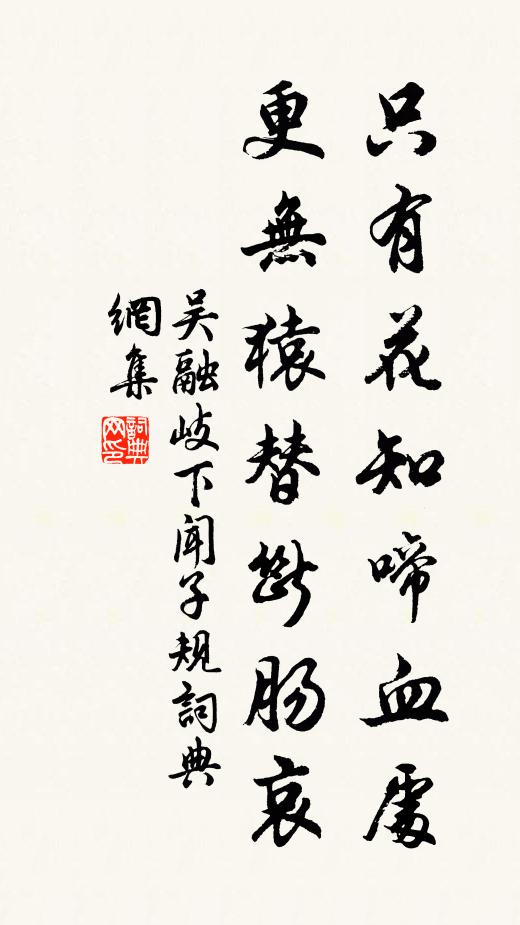 只有花知啼血處
更無猿替斷腸哀
吴融岐下闻子規詞典
網集
詞典
网印